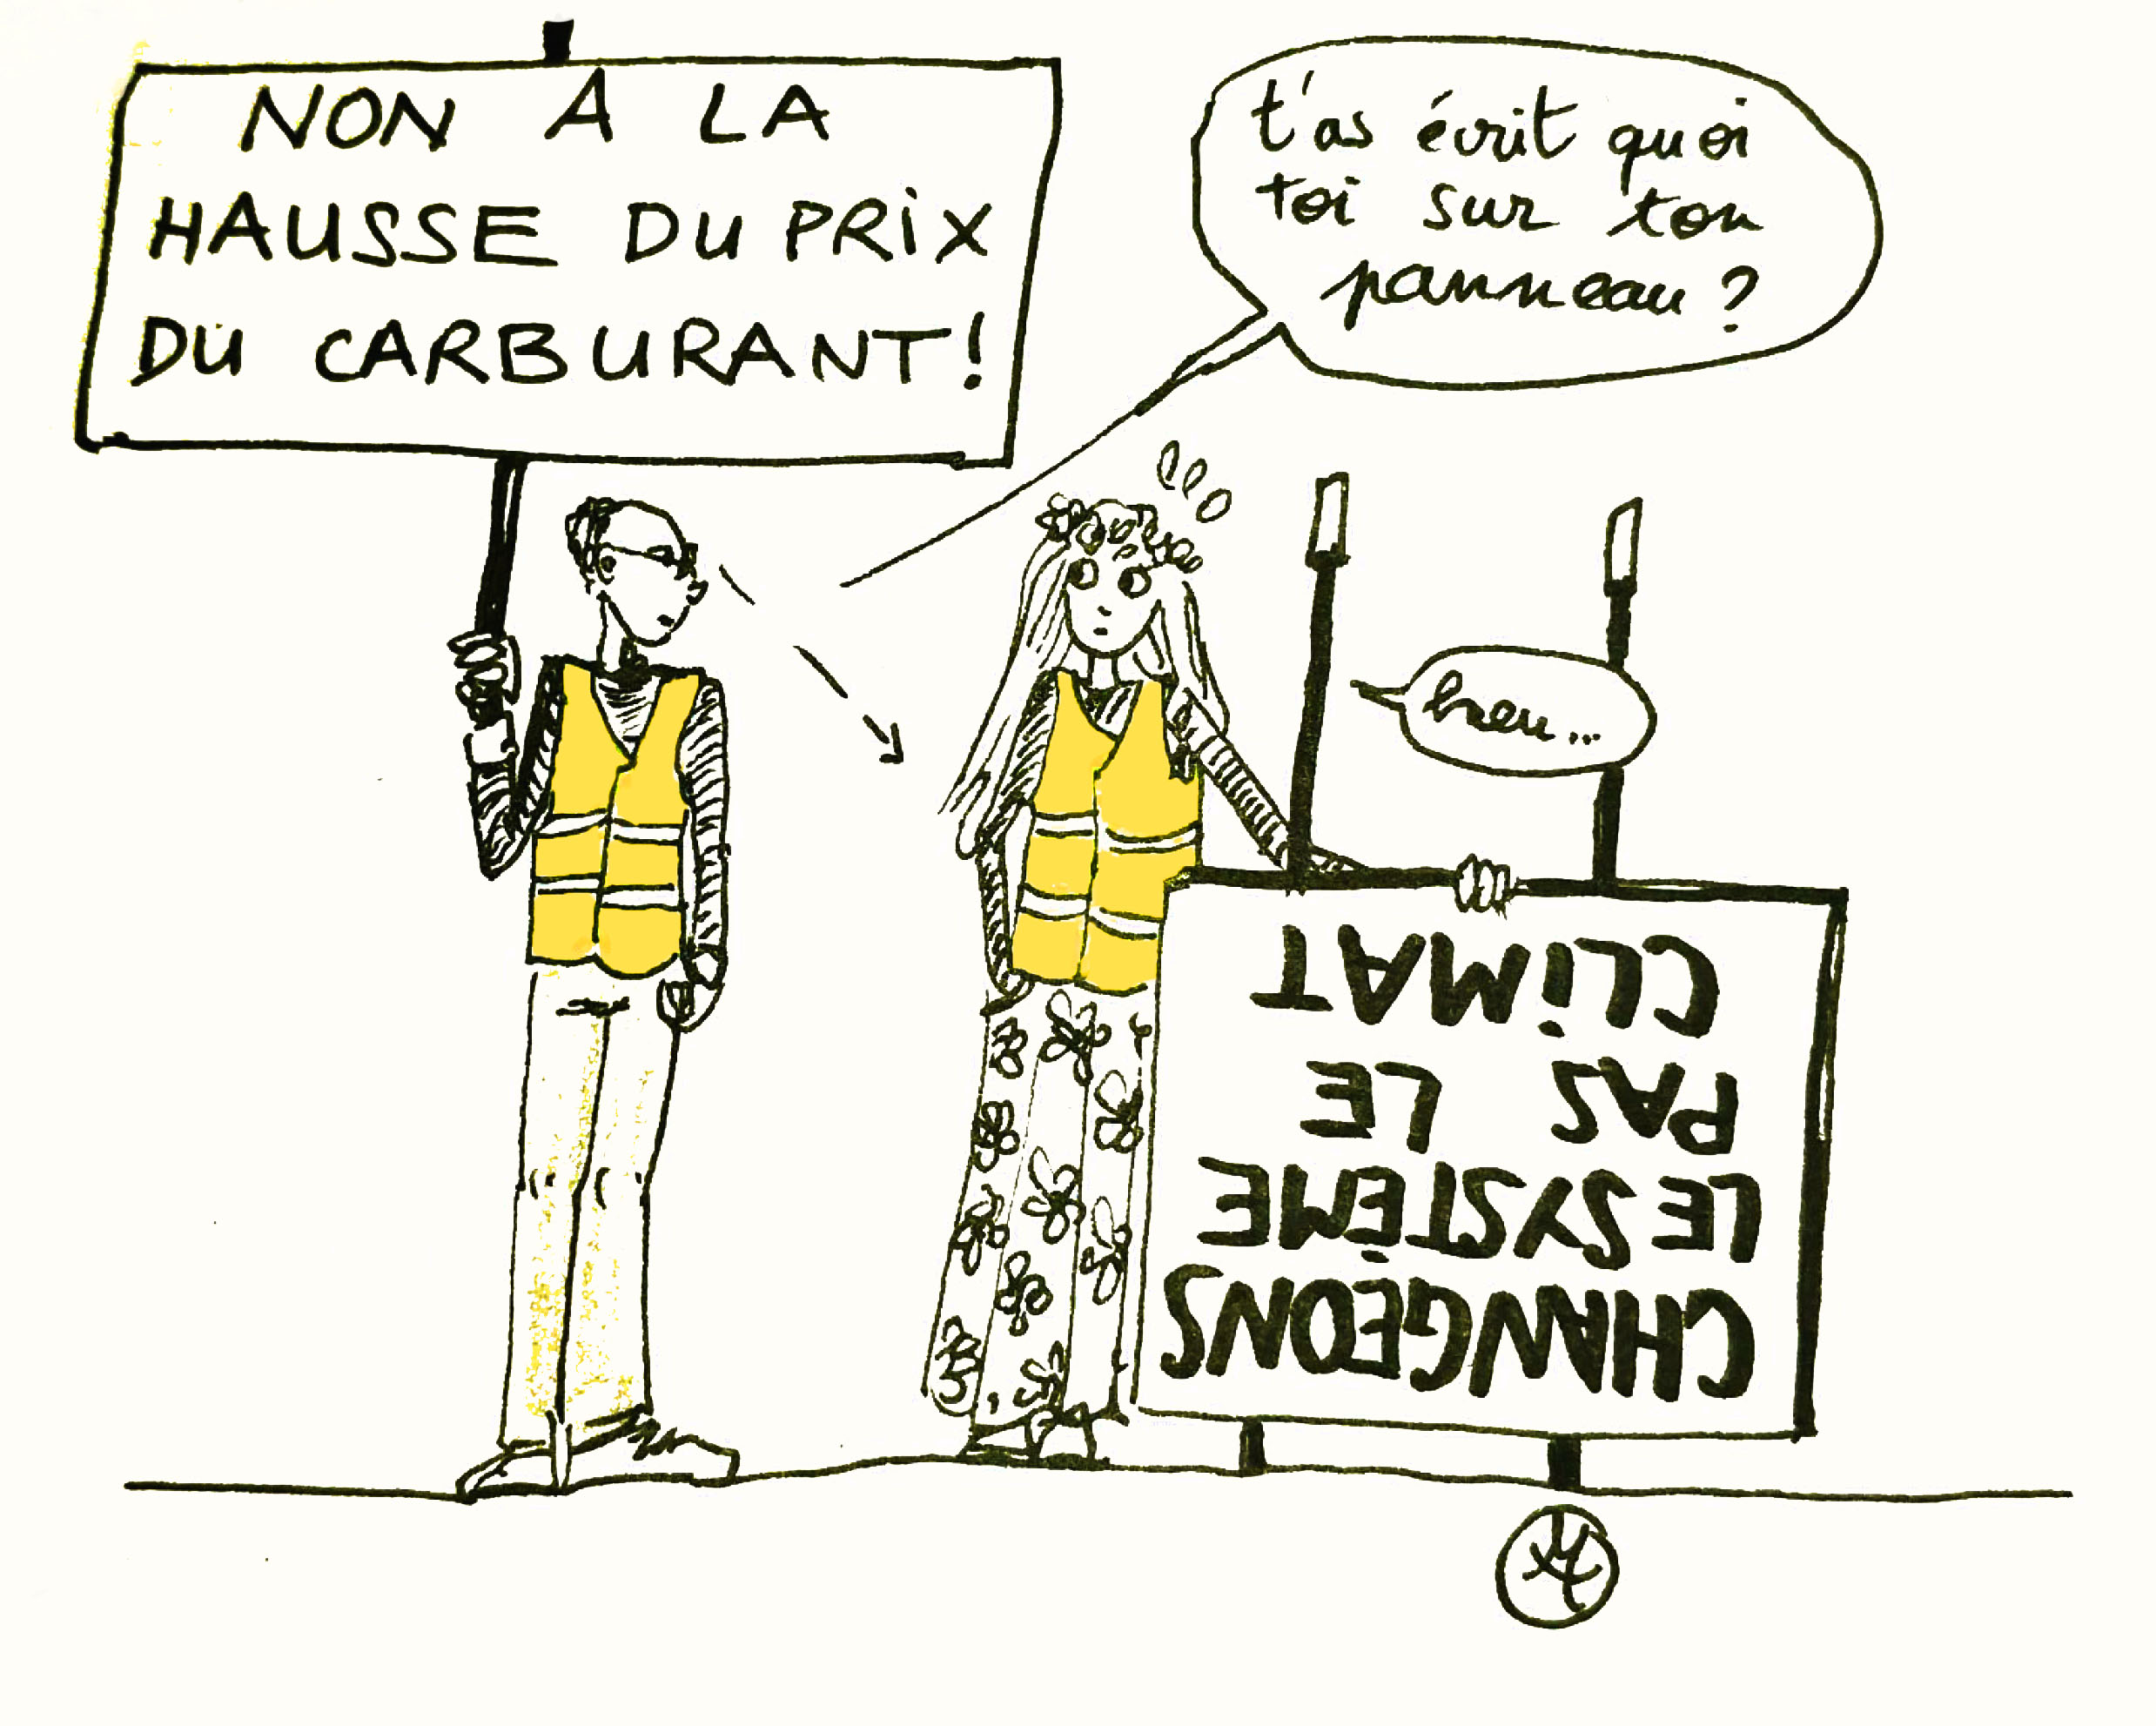 NON A LA
HAUSSE DU PRIX
DU CARBURANT!
t'as écrit quoi
toi sur ton
panneau?
heu...
CHANGEONS
LE SYSTÈME
PAS LE
CLIMAT